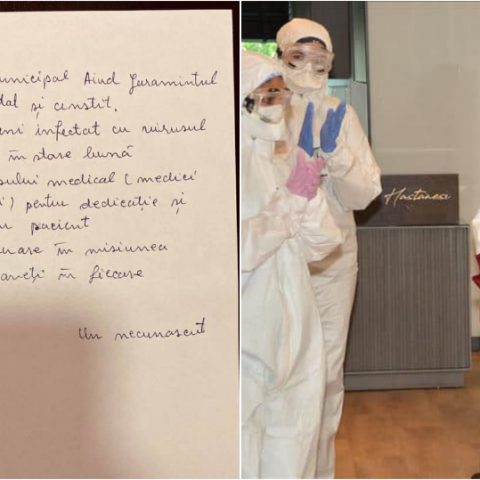 unicipal Aiud Juramintul
dal și cinstit.
eni infectat cu virusul
în stare bună
sului medical (medici
i) pentru dedicație și
u pacient
uare în misiunea
aveți în fiecare
Un necunoscut
Hastanesi